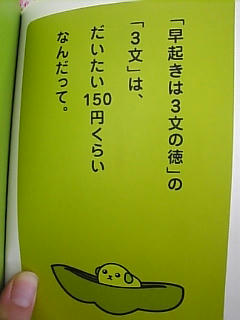 「早起きは３文の徳」の
「３文」は、
だいたい150円くらい
なんだって。